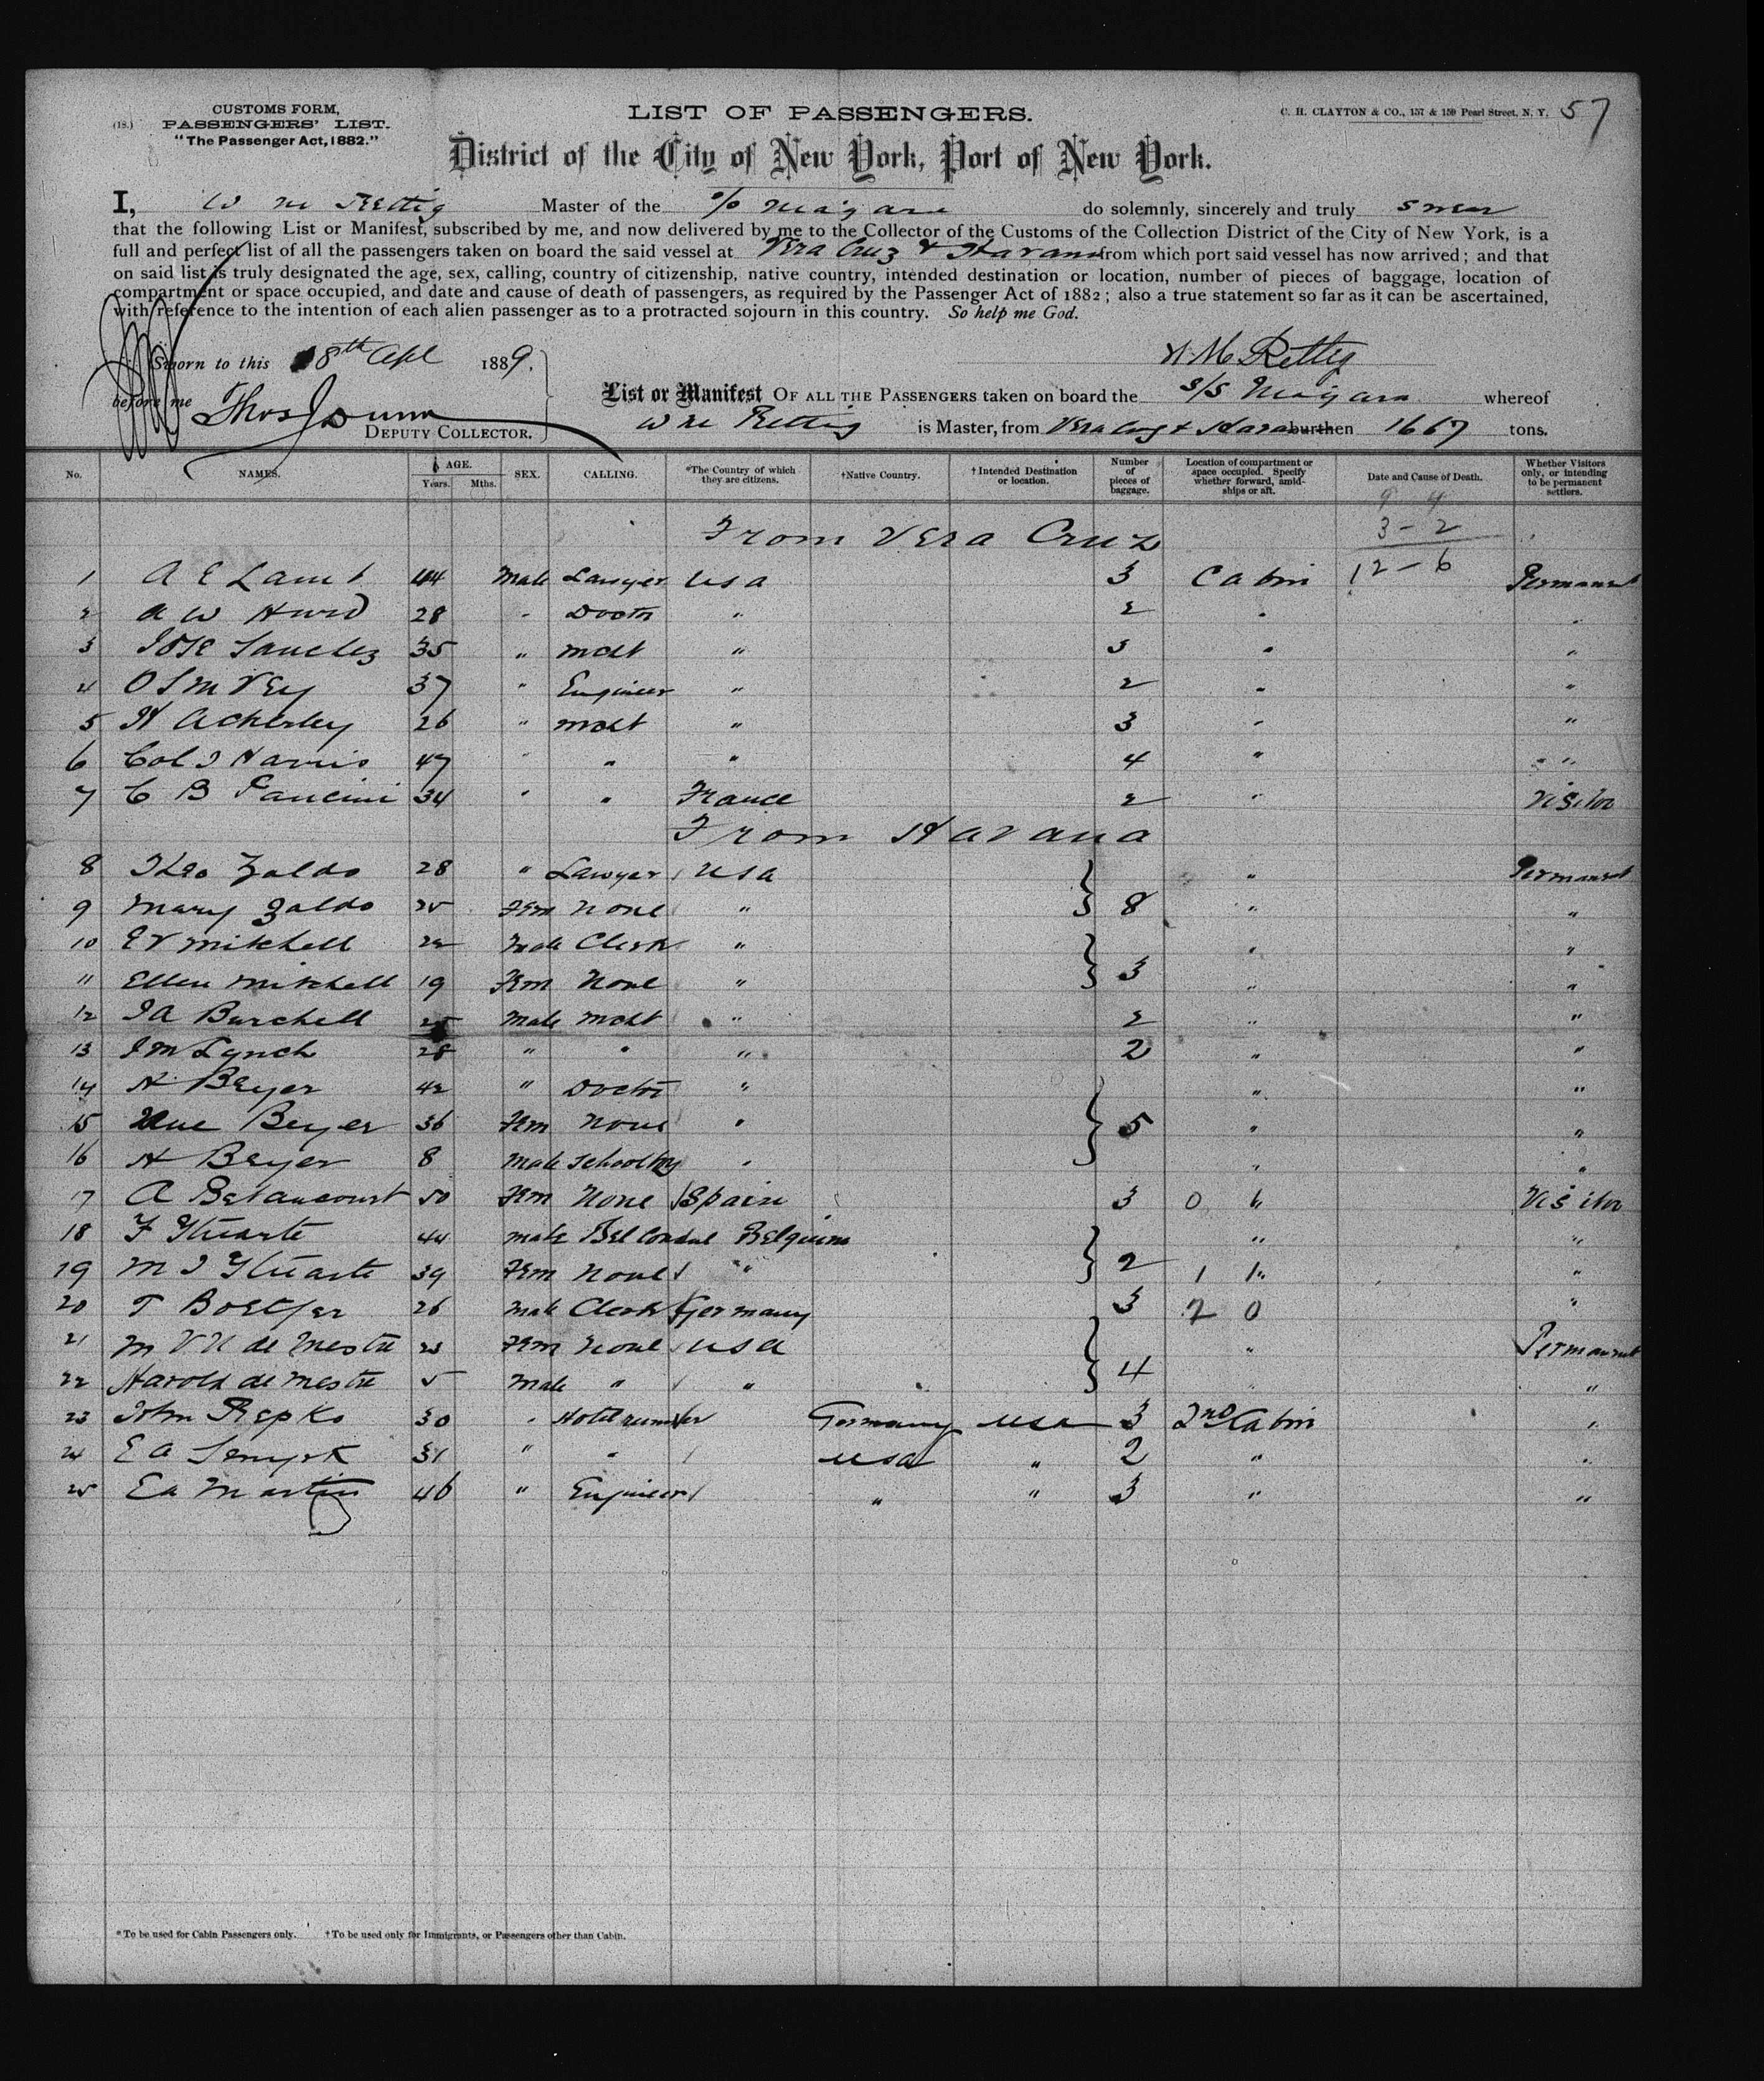 (18.)
CUSTOMS FORM,
PASSENGERS' LIST.
"The Passenger Act, 1882."
LIST OF PASSENGERS.
C. H. CLAYTON & CO., 157 & 159 Pearl Street, N. Y. 57
District of the City of New York, Port of New York.
I, W M Rettig Master of the S/S Niagara do solemnly, sincerely and truly swear
that the following List or Manifest, subscribed by me, and now delivered by me to the Collector of the Customs of the Collection District of the City of New York, is a
full and perfect list of all the passengers taken on board the said vessel at Vera Cruz & Havana from which port said vessel has now arrived; and that
on said list is truly designated the age, sex, calling, country of citizenship, native country, intended destination or location, number of pieces of baggage, location of
compartment or space occupied, and date and cause of death of passengers, as required by the Passenger Act of 1882; also a true statement so far as it can be ascertained,
with reference to the intention of each alien passenger as to a protracted sojourn in this country. So help me God.
Sworn to this 8th Apl 1889.
W M Rettig
before me Thos J Dunn
DEPUTY COLLECTOR.
List or Manifest OF ALL THE PASSENGERS taken on board the S/S Niagara whereof
W M Rettig is Master, from Vera Cruz & Havana burthen 1667 tons.
No. NAMES. AGE. Years. Mths. SEX. CALLING. *The Country of which they are citizens. †Native Country. †Intended Destination or location. Number of pieces of baggage. Location of compartment or space occupied. Specify whether forward, amidships or aft. Date and Cause of Death. Whether Visitors only, or intending to be permanent settlers.
9 4
From Vera Cruz 3 - 2
1 A E Lamb 44 Male Lawyer USA 3 Cabin 12 - 6 Permanent
2 A W Hurd 28 " Doctor " 2 " "
3 Jose Sanchez 35 " Mcht " 3 " "
4 O S M Vey 37 " Engineer " 2 " "
5 H Ackerley 26 " Mcht " 3 " "
6 Col J Harris 47 " " " 4 " "
7 C B Pancini 34 " " France 2 " Visitor
From Havana
8 Theo Zaldo 28 " Lawyer USA " Permanent
9 Mary Zaldo 25 Fem None " 8 " "
10 E V Mitchell 22 Male Clerk " " "
11 Ellen Mitchell 19 Fem None " 3 " "
12 J A Burchell 25 Male Mcht " 2 " "
13 J M Lynch 28 " " " 2 " "
14 H Beyer 42 " Doctor " " "
15 Beyer 36 Fem None " 5 " "
16 H Beyer 8 Male Schoolboy " " "
17 A Betancourt 50 Fem None Spain 3 0 " Visitor
18 F 44 Male Bel Consul Belgium " "
19 M J 39 Fem None " 2 1 1 " "
20 T Boetjer 26 Male Clerk Germany 3 2 0 "
21 M V N de Mestre 23 Fem None USA " Permanent
22 Harold de Mestre 5 Male " " 4 " "
23 John Repko 30 " Hotel runner Germany USA 3 2nd Cabin "
24 E A 31 " " USA " 2 " "
25 Ed Martin 46 " Engineer " " 3 " "
*To be used for Cabin Passengers only. †To be used only for Immigrants, or Passengers other than Cabin.